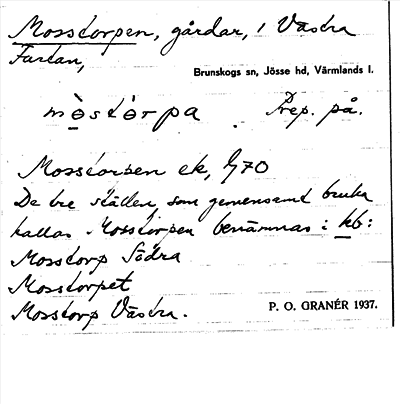 Mosstorpen, gårdar, i Västra
Furtan,
Brunskogs sn, Jösse hd, Värmlands l.
mòstòrpa . Prep. på.
Mosstorpen ek, G70
De tre ställen, som gemensamt bruka
kallas Mosstorpen benämnas i kb:
Mosstorp Södra
Mosstorpet
Mosstorp Västra.
P. O. GRANÉR 1937.